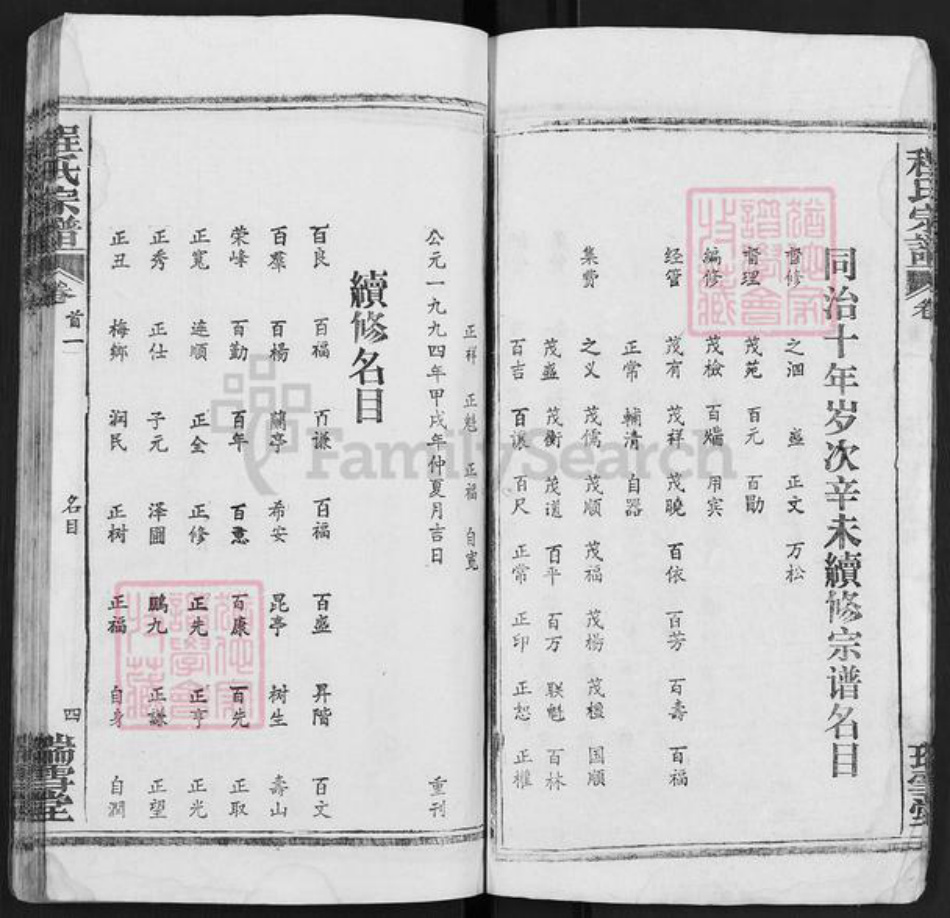 程氏宗譜
卷
同治十年岁次辛未續修宗谱名目
督修 之泗 盛 正文 万松
督理 茂苑 百元 百勛
編修 茂檢 百熾 用宾
经管 茂有 茂祥 茂曉 百依 百芳 百壽 百福
正常 輔清 自器
集费 之义 茂儒 茂顺 茂福 茂楊 茂檀 国顺
茂盛 茂衡 茂道 百平 百万 联魁 百林
百吉 百讓 百尺 正常 正印 正恕 正權
正祥 正魁 正福 自寬
公元一九九四年甲戌年仲夏月吉日 重刊
續修名目
百良 百福 百谦 百福 百盛 昇階 百文
百羣 百楊 蘭亭 希安 昆亭 树生 壽山
荣峰 百勤 百年 百意 百康 百先 正取
正寬 连順 正全 正修 正先 正亨 正光
正秀 正仕 子元 泽圃 鵬九 正謙 正望
正丑 梅鄉 润民 正树 正福 自身 自潤
程氏宗譜
卷首一
名目
四
瑞雪堂
FamilySearch